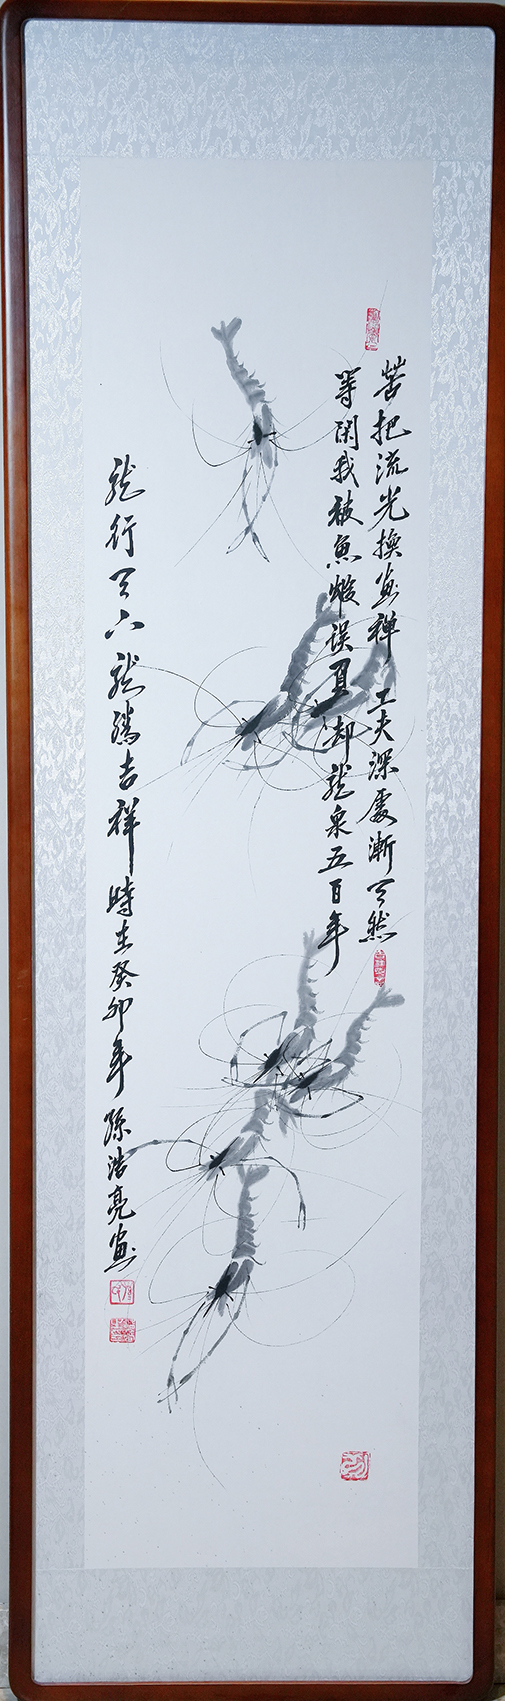 苦把流光換畫禪工夫深處漸天然
等閑我被魚蝦誤負却龍泉五百年
龍行天下龍騰吉祥時在癸卯年孫浩亮畫